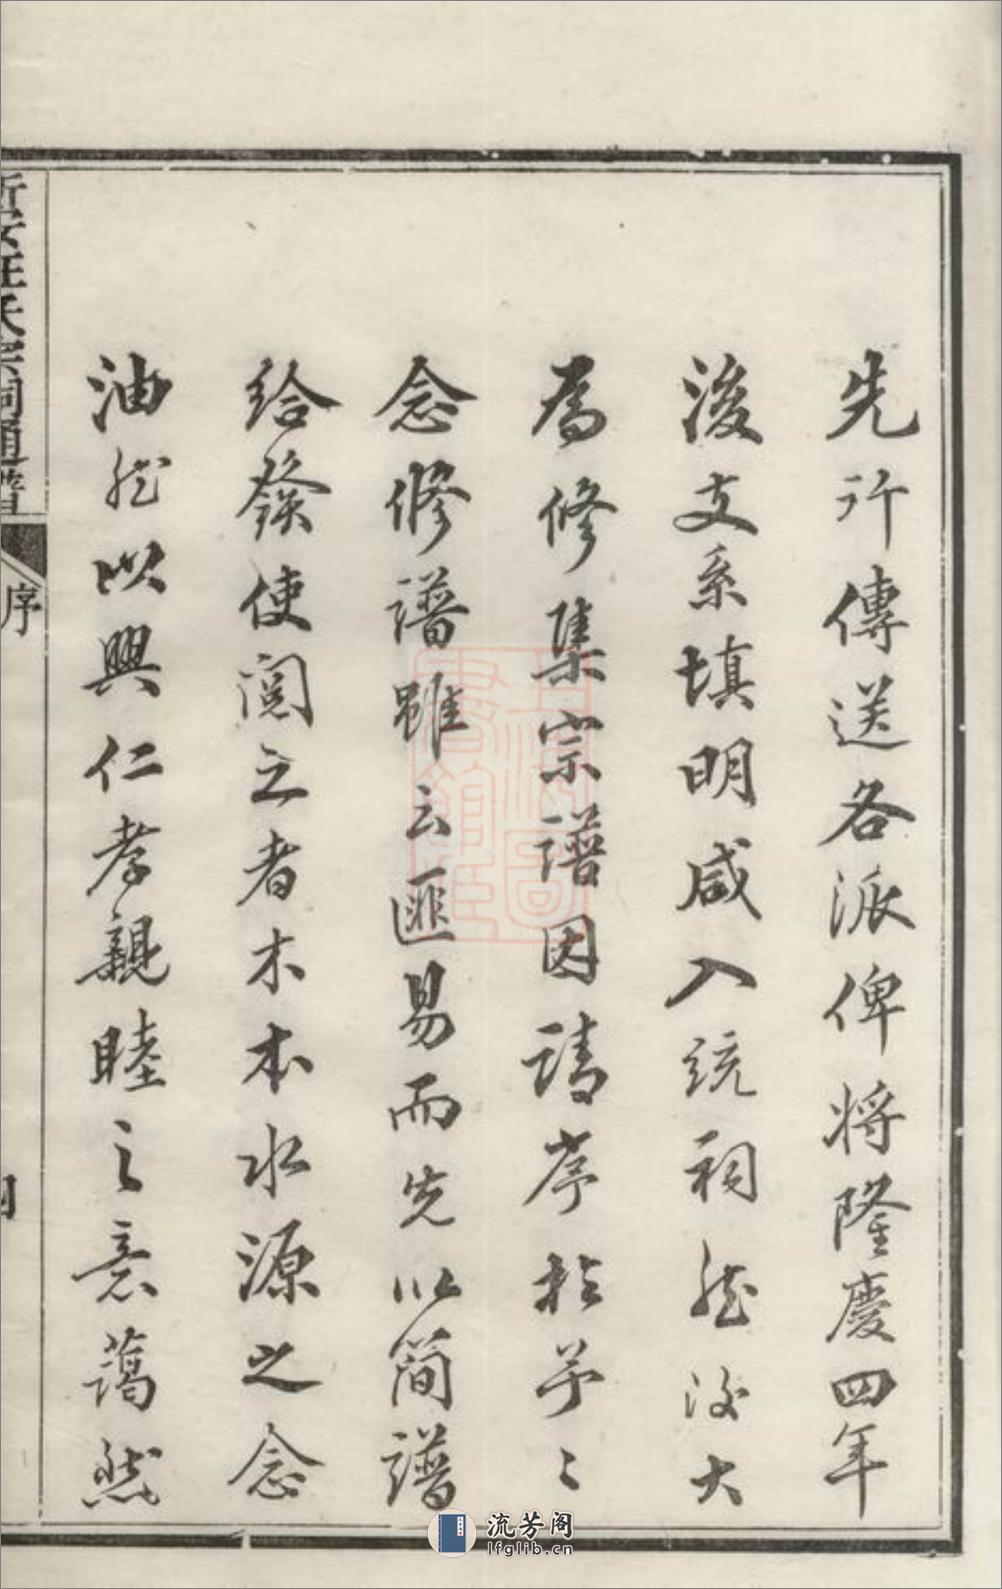 先所傳送各派俾將隆慶四年
後支系填明咸入統祠然後大
為修集宗譜因請序於予〻
念修譜雖云匪易而先以簡譜
給發使閱之者木本水源之念
油然以興仁孝親睦之意藹然
新安汪氏宗祠通譜
序
四
流芳阁
lfglib.cn